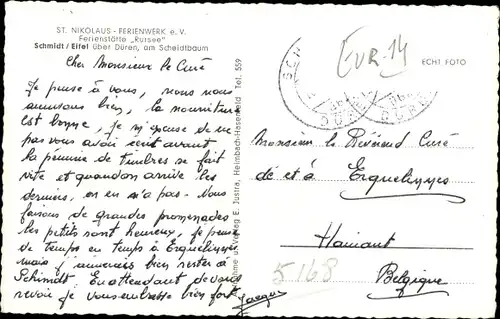 ST. NIKOLAUS - FERIENWERK e. V.
Ferienstätte „Rursee"
Schmidt / Eifel über Düren, am Scheidtbaum
Cher Monsieur le Curé
Je pense à vous, nous nous
amusons bien, la nourriture
est bonne, je m'excuse de ne
pas vous avoir écrit avant
la pénurie de timbres se fait
vite et quand on arrive les
derniers, on en n'a pas. Nous
faisons de grandes promenades
les petits sont heureux, je pense
de temps en temps à Erquelinnes
mais j'aimerais bien rester à
Schimdt. En attendant de vous
revoir je vous embrasse bien fort
Jacques
Verlag E. Justra, Heimbach-Hasenfeld Tel. 559
EUR-14
ECHT FOTO
DÜREN
DÜREN
Monsieur le Révérend Curé
de et à
Erquelinnes
Hainaut
5168
Belgique